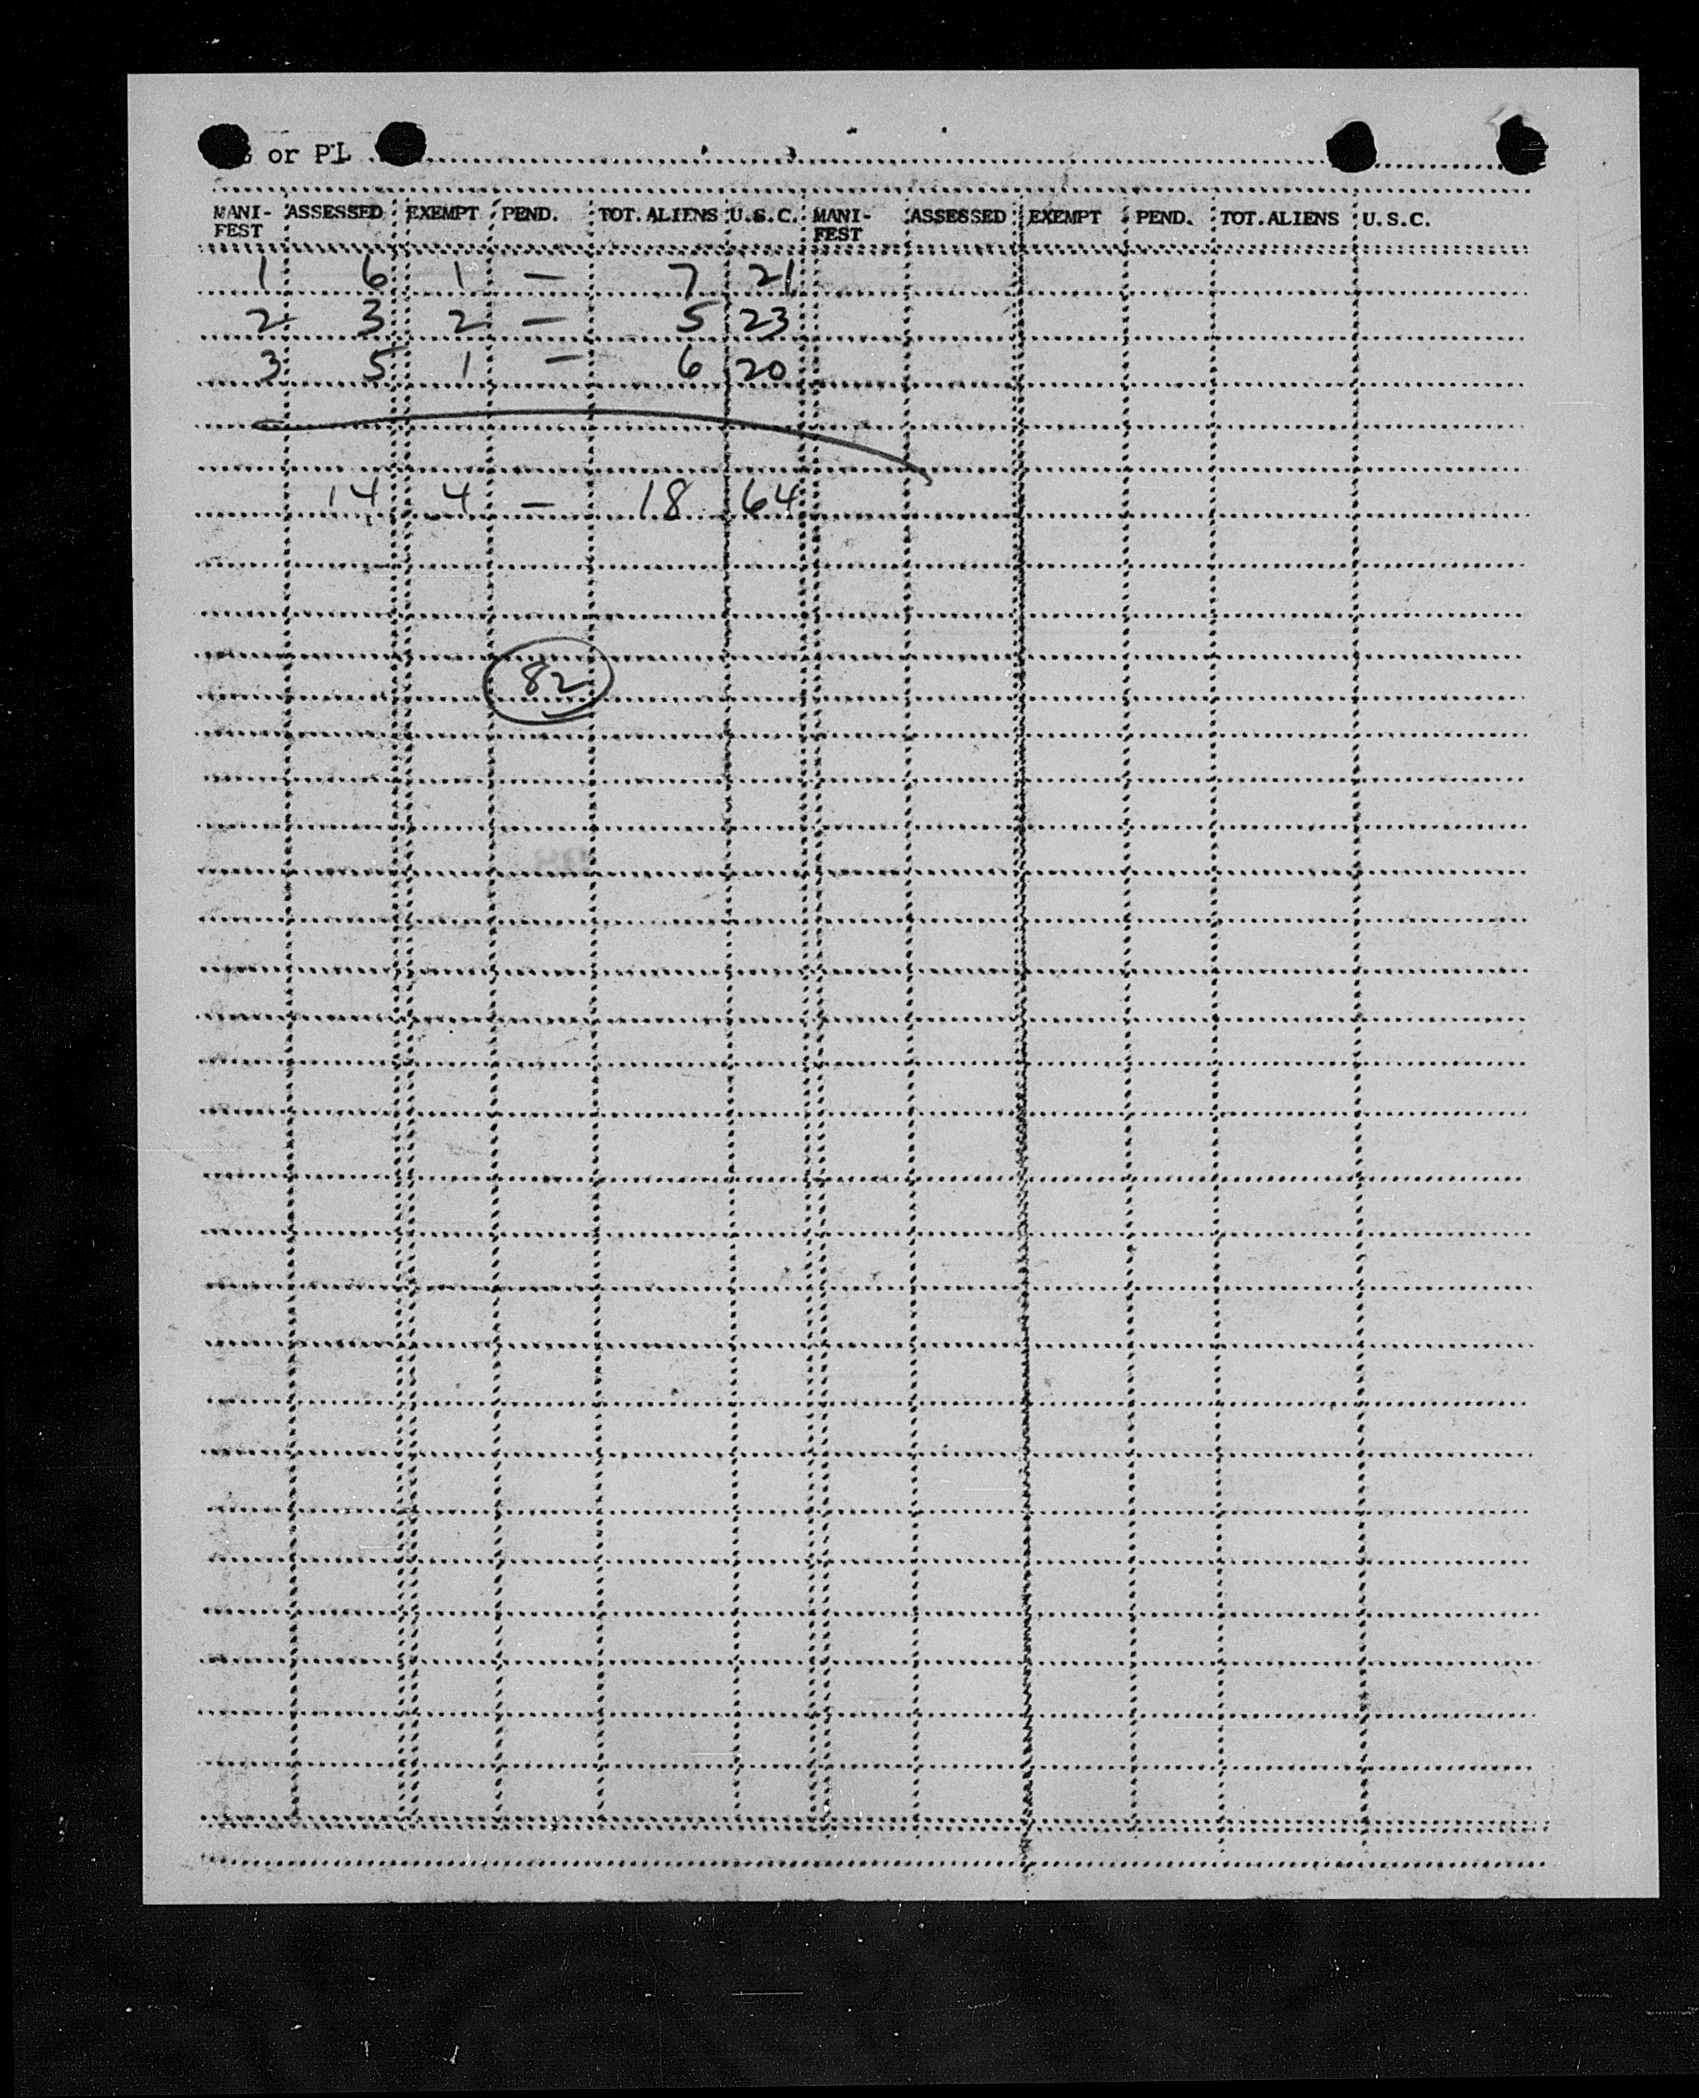 or PL
MANI- ASSESSED EXEMPT PEND. TOT. ALIENS U.S.C. MANI- ASSESSED EXEMPT PEND. TOT. ALIENS U.S.C.
FEST FEST
1 6 1 — 7 21
2 3 2 — 5 23
3 5 1 — 6 20
14 4 — 18 64
82